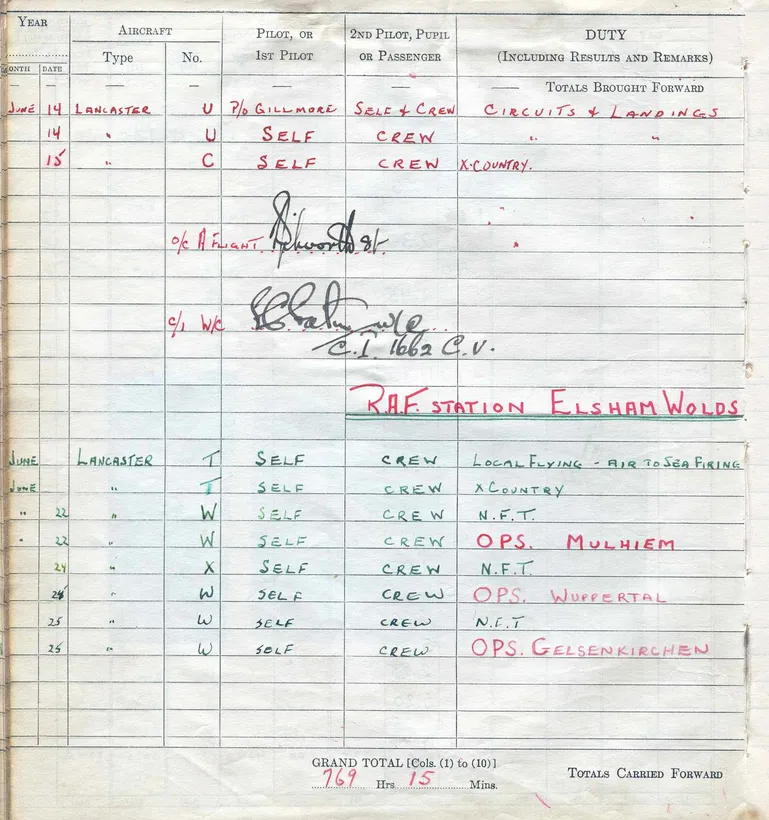 YEAR AIRCRAFT PILOT, OR 2ND PILOT, PUPIL DUTY
MONTH DATE Type No. 1ST PILOT OR PASSENGER (INCLUDING RESULTS AND REMARKS)
— — — — — — — TOTALS BROUGHT FORWARD
JUNE 14 LANCASTER U P/O GILLMORE SELF & CREW CIRCUITS & LANDINGS
14 " U SELF CREW " "
15 " C SELF CREW X-COUNTRY.
O/C A FLIGHT
C/I W/C W/C
C.I. 1662 C.V.
R.A.F. STATION ELSHAM WOLDS
JUNE LANCASTER T SELF CREW LOCAL FLYING - AIR TO SEA FIRING
JUNE " T SELF CREW X COUNTRY
" 22 " W SELF CREW N.F.T.
" 22 " W SELF CREW OPS. MULHIEM
24 " X SELF CREW N.F.T.
24 " W SELF CREW OPS. WUPPERTAL
25 " W SELF CREW N.F.T
25 " W SELF CREW OPS. GELSENKIRCHEN
GRAND TOTAL [Cols. (1) to (10)]
769 Hrs 15 Mins. TOTALS CARRIED FORWARD